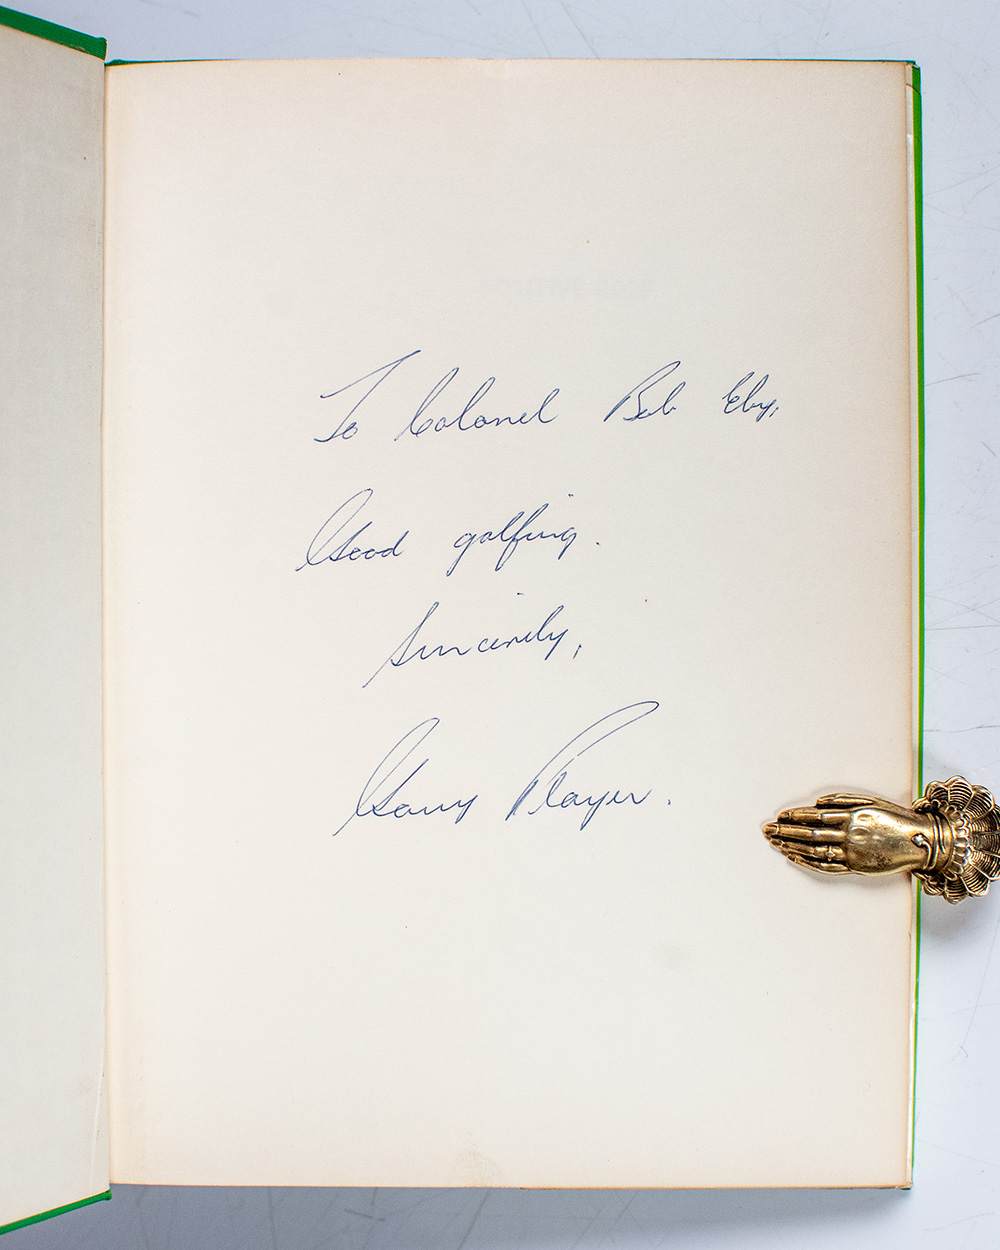 To Colonel Bob Eby,
Good golfing.
Sincerely,
Gary Player.